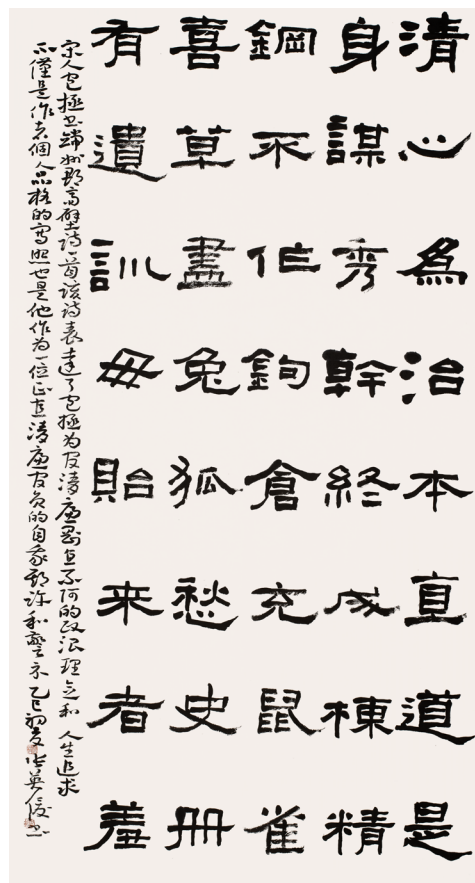 清心為治本直道是
身謀秀幹終成棟精
鋼不作鉤倉充鼠雀
喜草盡兔狐愁史冊
有遺訓毋貽来者羞
宋人包拯书端州郡斋壁诗一首该诗表達了包拯为官清廉刚直不阿的政治理念和人生追求
不僅是作者個人品格的寫照也是他作为一位正直清廉官员的自我期许和警示乙巳初夏张英俊书